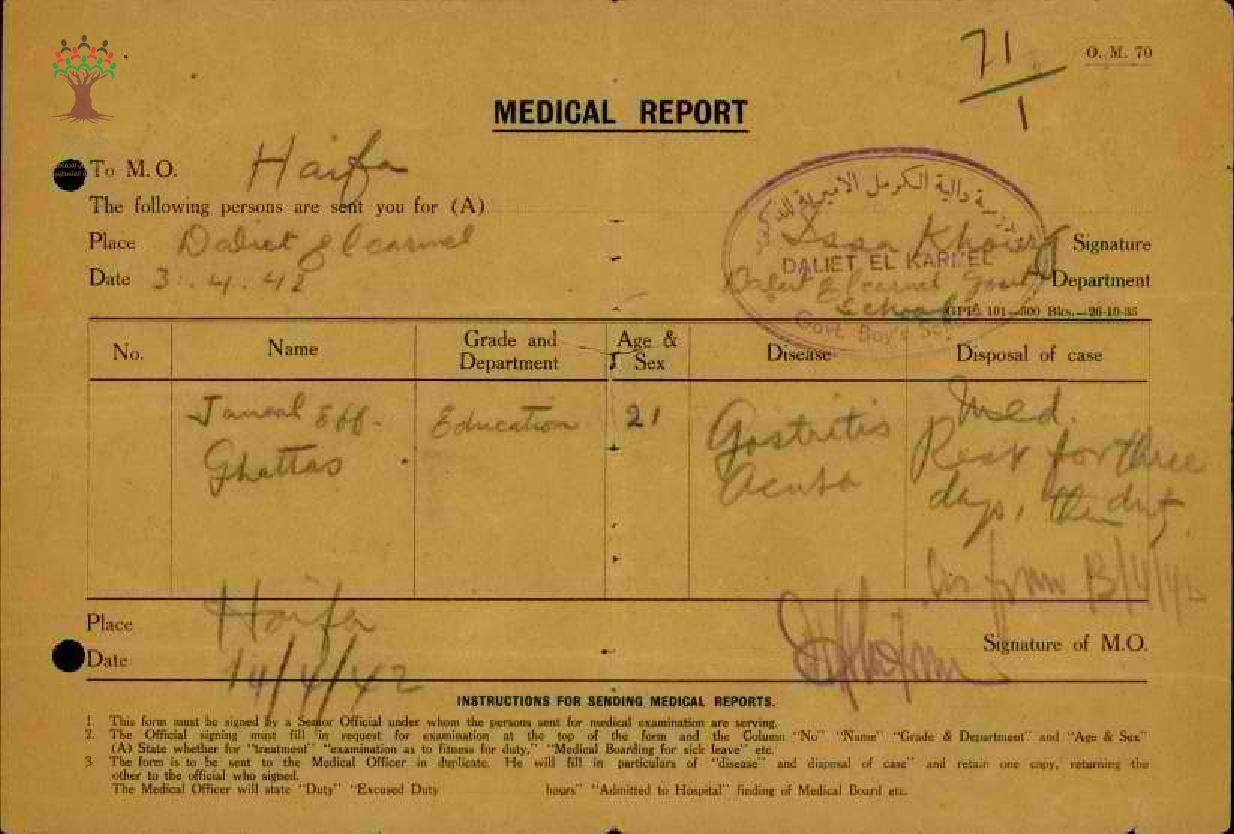 71
1
O. M. 70
MEDICAL REPORT
To M. O. Haifa
The following persons are sent you for (A)
مدرسة دالية الكرمل الاميرية للذكور
Place Daliet el carmel
Issa Khoury Signature
DALIET EL KARMEL
Date 3.4.42
Daliet el carmel Govt. Department
School
GPIC 101—500 Bks.—26-10-35
Govt. Boy's
No.
Name
Grade and Department
Age & Sex
Disease
Disposal of case
Jameal Eff.
Ghattas
Education
21
Gastritis
Acuta
Med.
Rest for three
days, then duty
as from 13/4/42
Place Haifa
Signature of M.O.
Date 14/4/42
INSTRUCTIONS FOR SENDING MEDICAL REPORTS.
1. This form must be signed by a Senior Official under whom the persons sent for medical examination are serving.
2. The Official signing must fill in request for examination at the top of the form and the Column "No" "Name" "Grade & Department" and "Age & Sex"
(A) State whether for "treatment" "examination as to fitness for duty," "Medical Boarding for sick leave" etc.
3 The form is to be sent to the Medical Officer in duplicate. He will fill in particulars of "disease" and disposal of case" and retain one copy, returning the
other to the official who signed.
The Medical Officer will state "Duty" "Excused Duty hours" "Admitted to Hospital" finding of Medical Board etc.